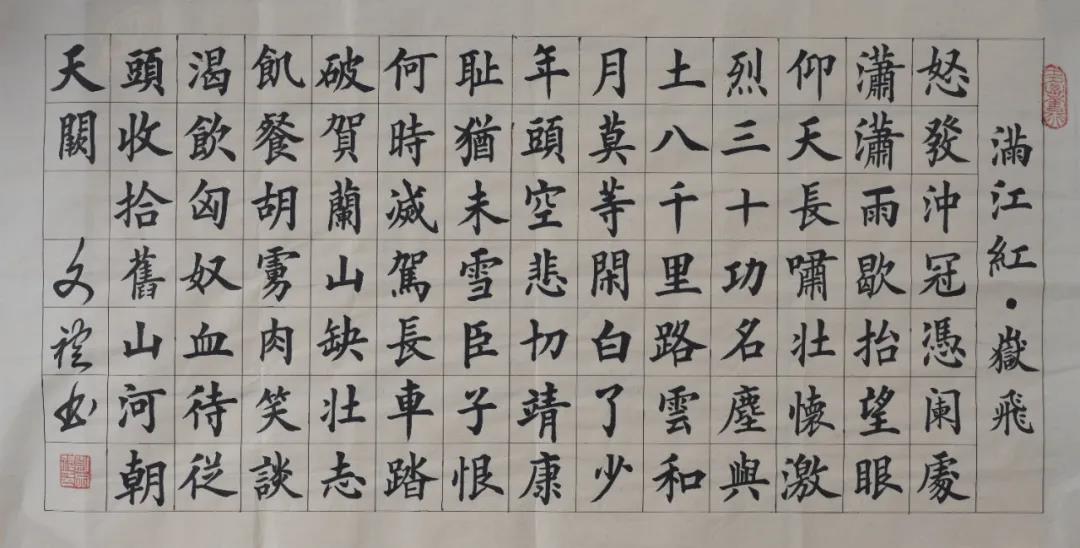 滿江紅·嶽飛
怒發沖冠憑闌處
瀟瀟雨歇抬望眼
仰天長嘯壯懷激
烈三十功名塵與
土八千里路雲和
月莫等閑白了少
年頭空悲切靖康
耻猶未雪臣子恨
何時滅駕長車踏
破賀蘭山缺壯志
飢餐胡虜肉笑談
渴飲匈奴血待從
頭收拾舊山河朝
天闕
文禮书